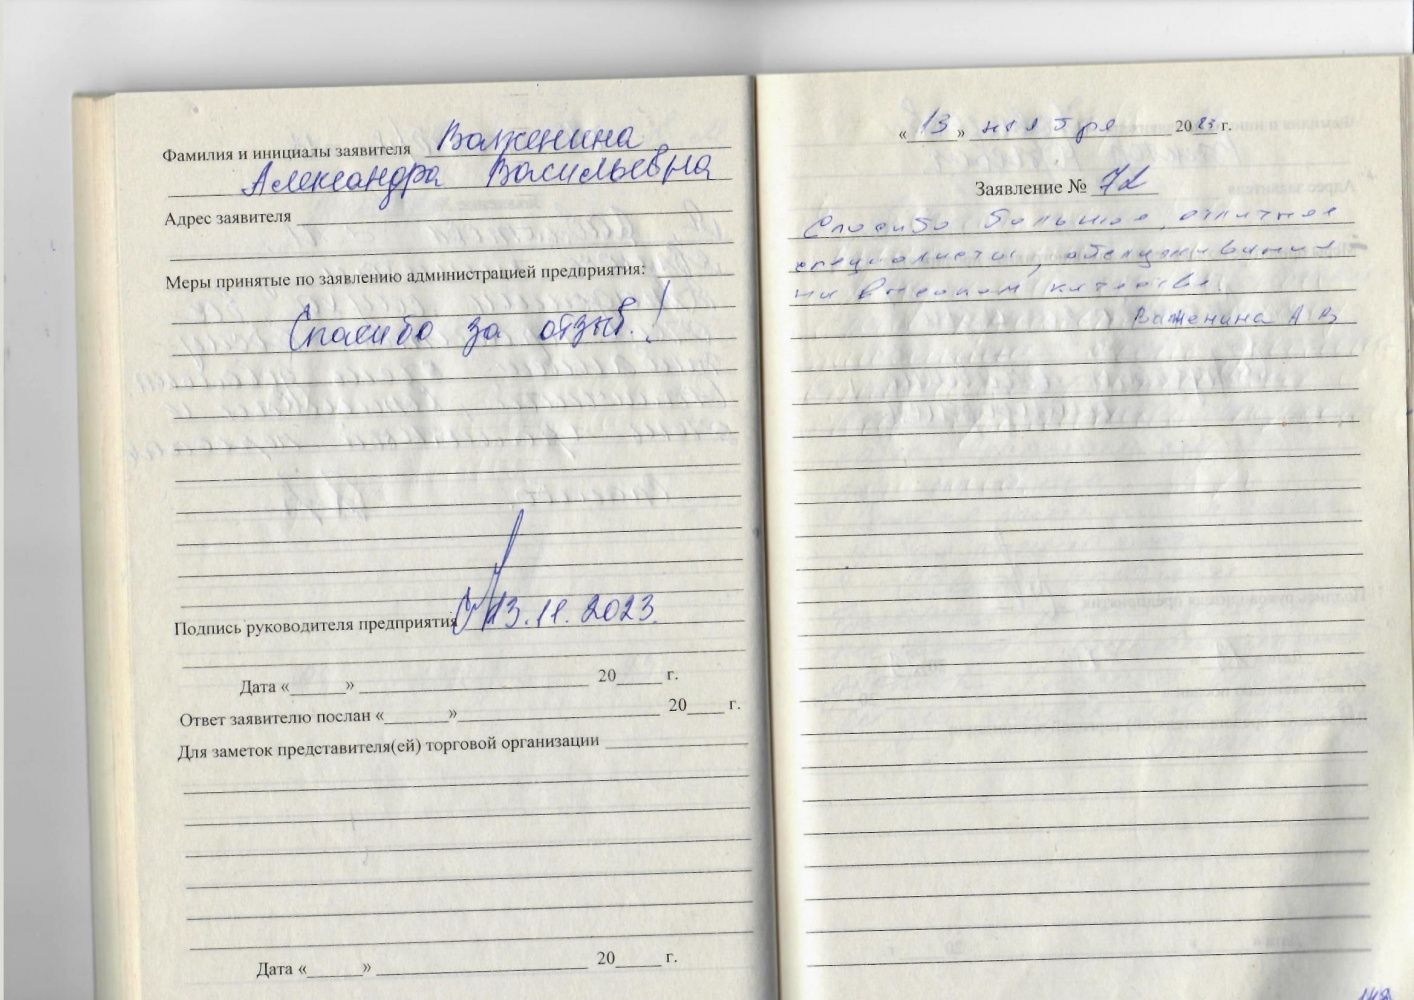 Фамилия и инициалы заявителя Важенина
Александра Васильевна
Адрес заявителя
Меры принятые по заявлению администрацией предприятия:
Спасибо за отзыв!
Подпись руководителя предприятия 13.11.2023.
Дата «______» ______ 20____ г.
Ответ заявителю послан «______» ______ 20____ г.
Для заметок представителя(ей) торговой организации
Дата «______» ______ 20____ г.
«13» ноября 2023 г.
Заявление № 72
Спасибо большое, отличные
специалисты, обслуживание
на высоком качестве.
Важенина А В